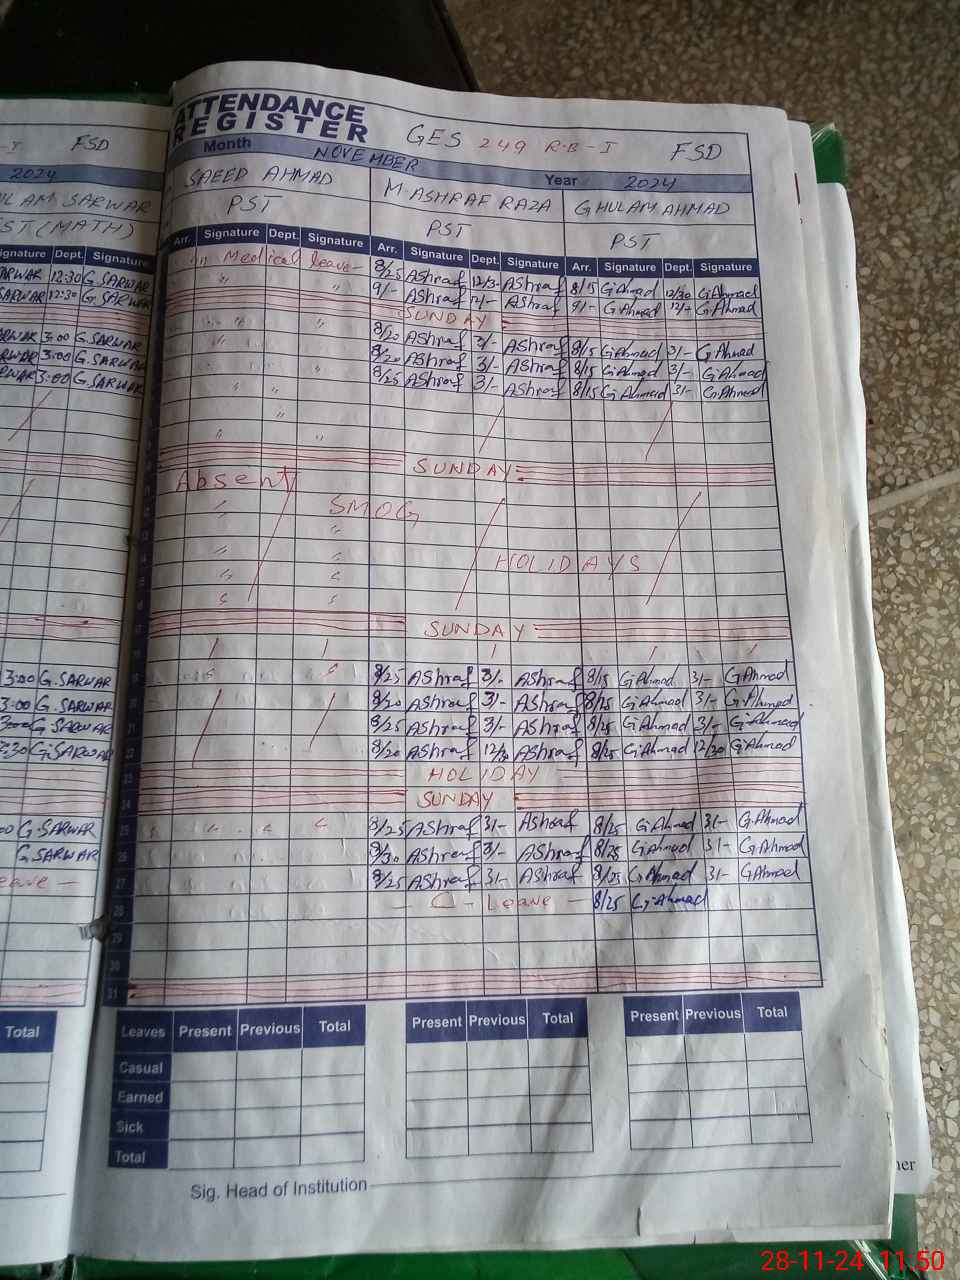 ATTENDANCE
REGISTER
GES 249 R-B-I FSD
FSD
Month NOVEMBER Year 2024
2024
SAEED AHMAD M-ASHRAF RAZA GHULAM AHMAD
SARWAR
PST PST PST
(MATH)
Arr. Signature Dept. Signature Arr. Signature Dept. Signature Arr. Signature Dept. Signature
Dept. Signature
SARWAR 12:30 G.SARWAR
Medical leave 8/25 AShraf AShraf 8/15 G.Ahmad 12/30 G.Ahmad
SARWAR 12:30 G.SARWAR
9/- AShraf 12/- AShraf 9/- G.Ahmad 12/- G.Ahmad
SUNDAY
3:00 G.SARWAR
8/20 AShraf 3/- AShraf 8/15 G.Ahmad 3/- G.Ahmad
3:00 G.SARWAR
8/20 AShraf 3/- AShraf 8/15 G.Ahmad 3/- G.Ahmad
3:00 G.SARWAR
8/25 AShraf 3/- AShraf 8/15 G.Ahmad 3/- G.Ahmad
SUNDAY
Absent
SMOG
HOLIDAYS
SUNDAY
3:00 G.SARWAR
8/25 AShraf 3/- AShraf 8/15 G.Ahmad 3/- G.Ahmad
3:00 G.SARWAR
20 8/20 AShraf 3/- AShraf 8/25 G.Ahmad 3/- G.Ahmad
G.SARWAR
21 8/25 AShraf 3/- AShraf 8/25 G.Ahmad 3/- G.Ahmad
G.SARWAR
22 8/20 AShraf 12/30 AShraf 8/25 G.Ahmad 12/30 G.Ahmad
23 HOLIDAY
24 SUNDAY
G.SARWAR
25 8/25 AShraf 3/- AShraf 8/25 G.Ahmad 3/- G.Ahmad
G.SARWAR
26 8/30 AShraf 3/- AShraf 8/25 G.Ahmad 3/- G.Ahmad
27 8/25 AShraf 3/- AShraf 8/25 G.Ahmad 3/- G.Ahmad
28 - C - Leave - 8/25 G.Ahmad
29
30
31
Total
Leaves Present Previous Total Present Previous Total Present Previous Total
Casual
Earned
Sick
Total
Sig. Head of Institution
28-11-24 11:50